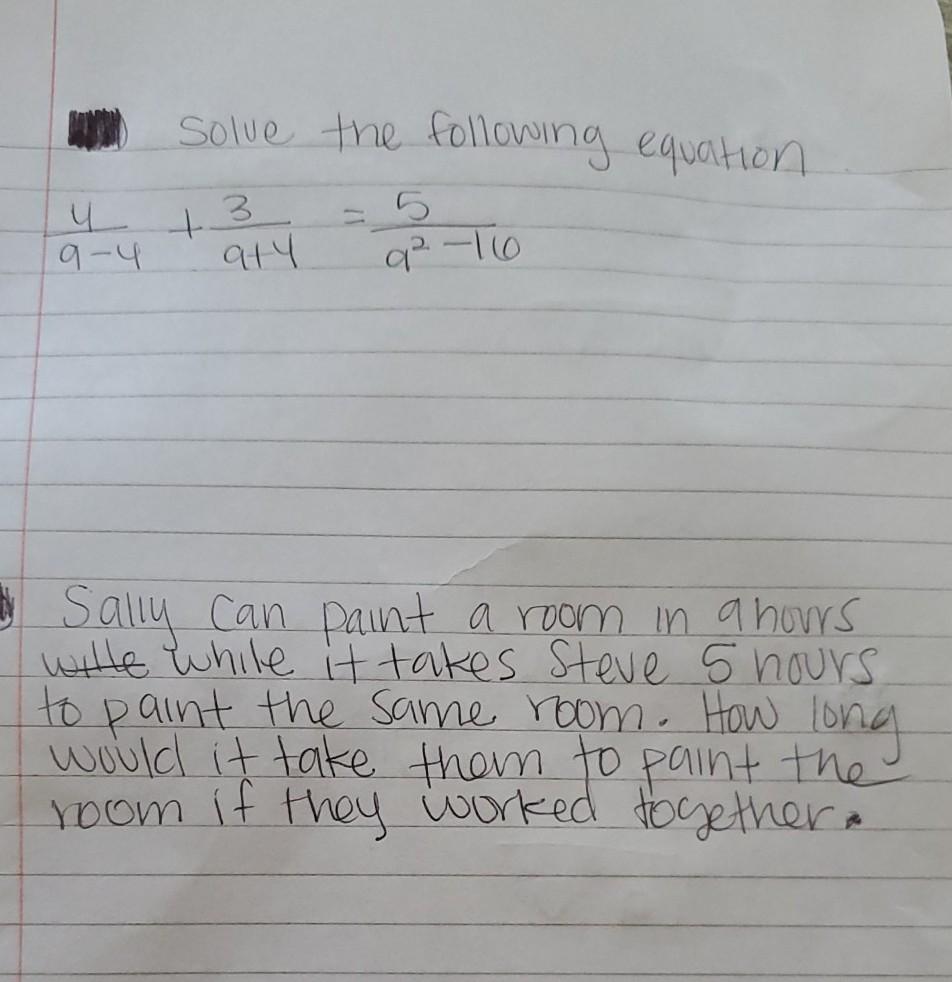 Solve the following equation
4/a-4 + 3/a+4 = 5/a²-16
Sally can paint a room in 9 hours
while it takes Steve 5 hours
to paint the same room. How long
would it take them to paint the
room if they worked together.